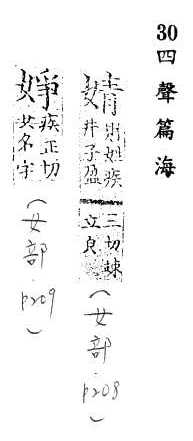 30四聲篇海
婧 財姓疾井子盈三切竦立皃(女部.p208)
婙 疾正切女名字(女部.p209)